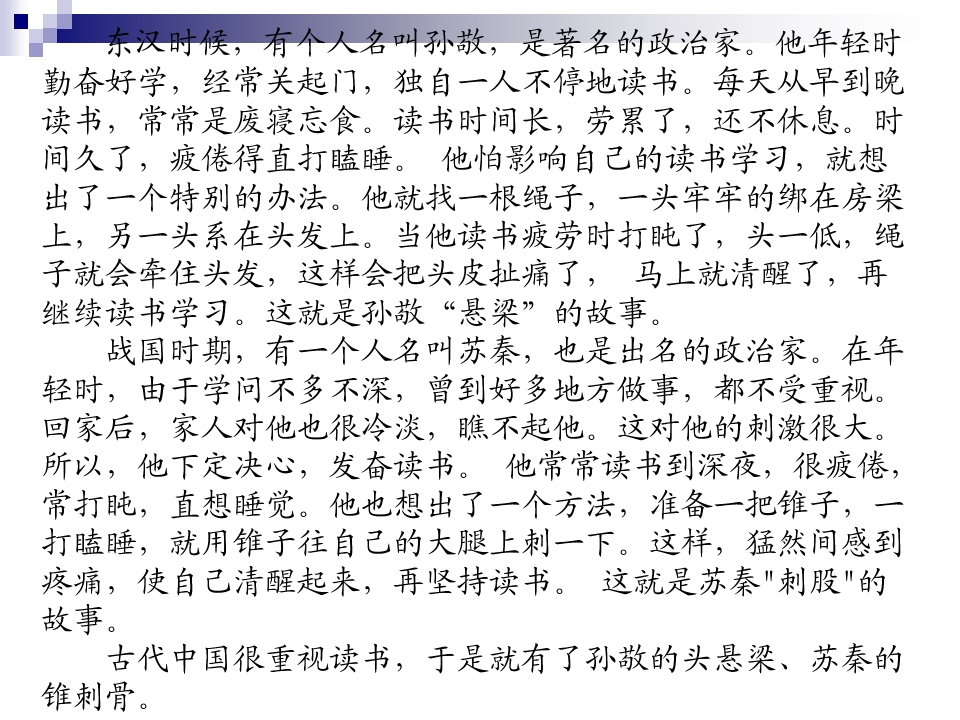 东汉时候，有个人名叫孙敬，是著名的政治家。他年轻时
勤奋好学，经常关起门，独自一人不停地读书。每天从早到晚
读书，常常是废寝忘食。读书时间长，劳累了，还不休息。时
间久了，疲倦得直打瞌睡。 他怕影响自己的读书学习，就想
出了一个特别的办法。他就找一根绳子，一头牢牢的绑在房梁
上，另一头系在头发上。当他读书疲劳时打盹了，头一低，绳
子就会牵住头发，这样会把头皮扯痛了， 马上就清醒了，再
继续读书学习。这就是孙敬“悬梁”的故事。
战国时期，有一个人名叫苏秦，也是出名的政治家。在年
轻时，由于学问不多不深，曾到好多地方做事，都不受重视。
回家后，家人对他也很冷淡，瞧不起他。这对他的刺激很大。
所以，他下定决心，发奋读书。 他常常读书到深夜，很疲倦，
常打盹，直想睡觉。他也想出了一个方法，准备一把锥子，一
打瞌睡，就用锥子往自己的大腿上刺一下。这样，猛然间感到
疼痛，使自己清醒起来，再坚持读书。 这就是苏秦"刺股"的
故事。
古代中国很重视读书，于是就有了孙敬的头悬梁、苏秦的
锥刺骨。